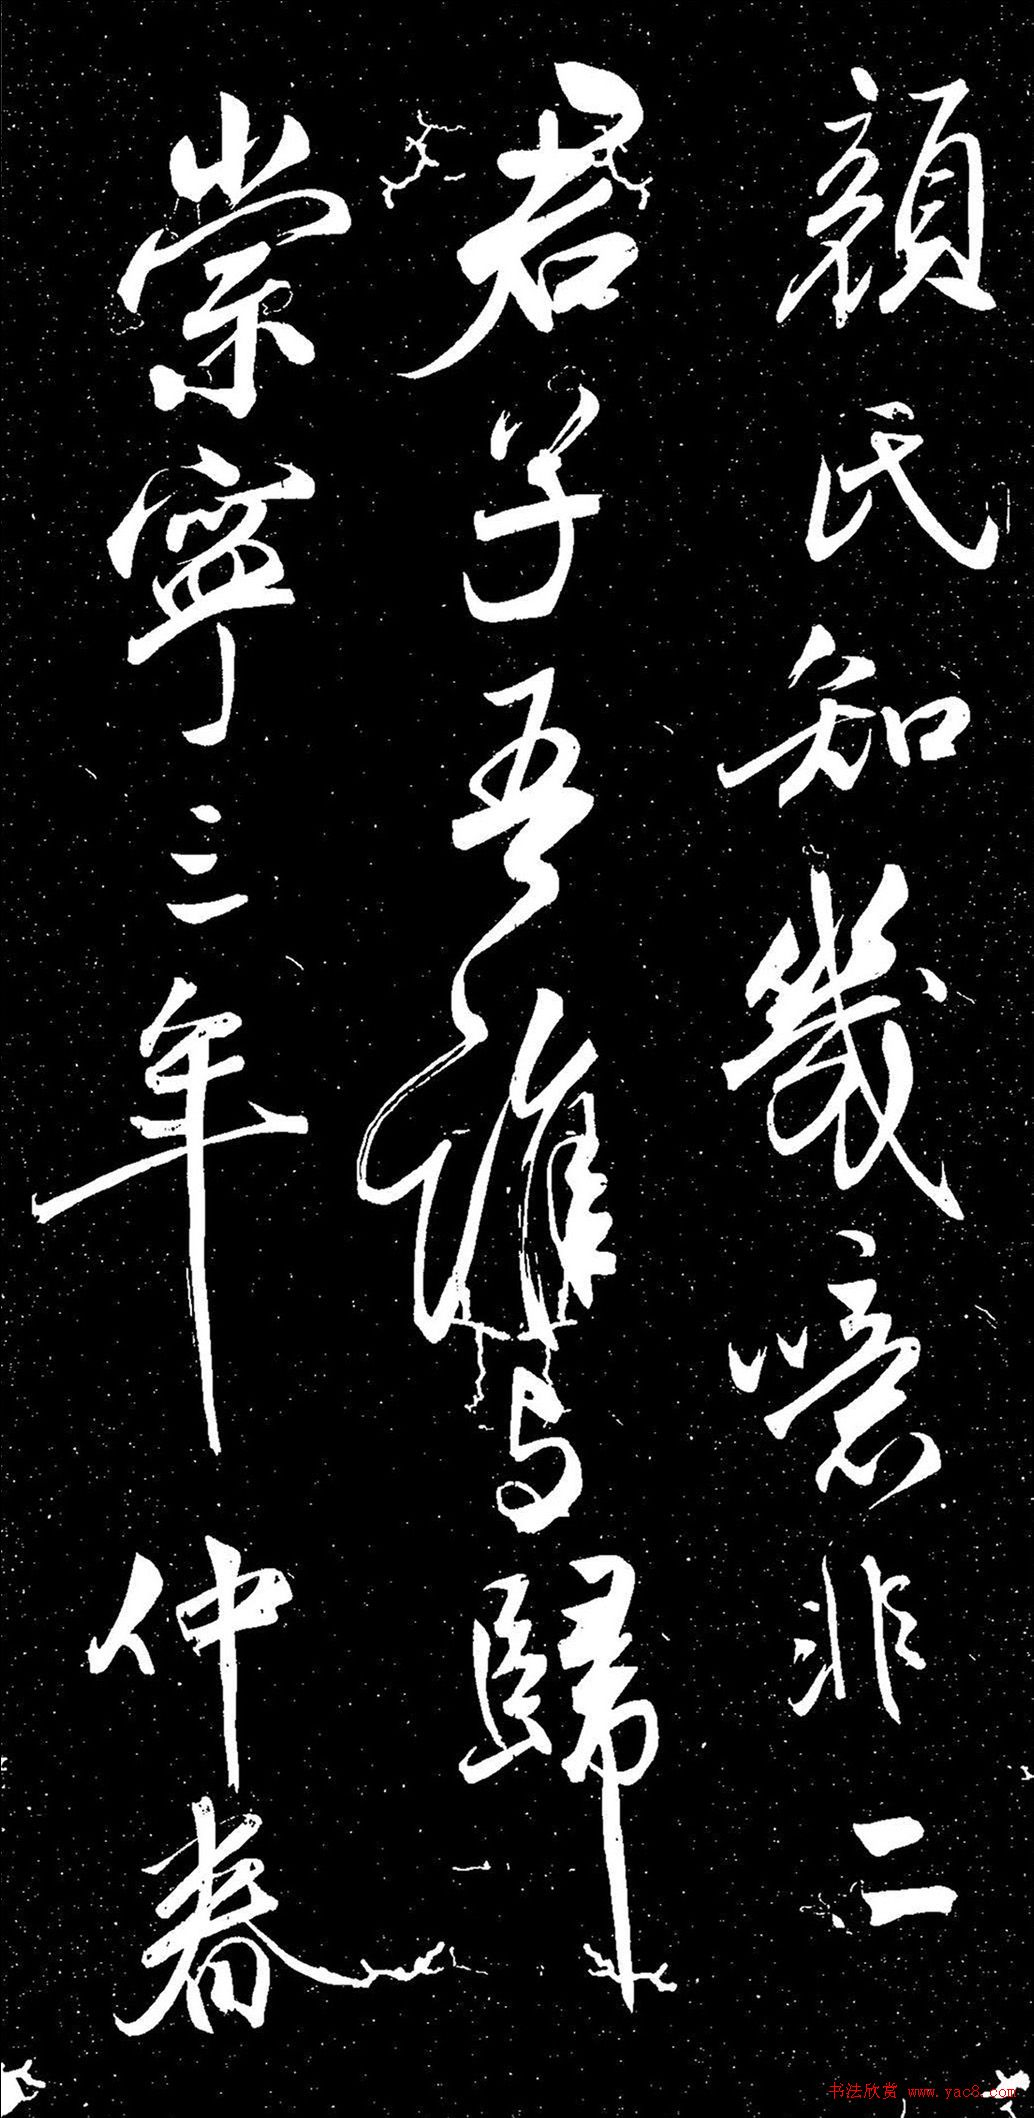 顏氏知幾噫非二
君子吾誰与歸
崇寧三年仲春
书法欣赏 www.yac8.com